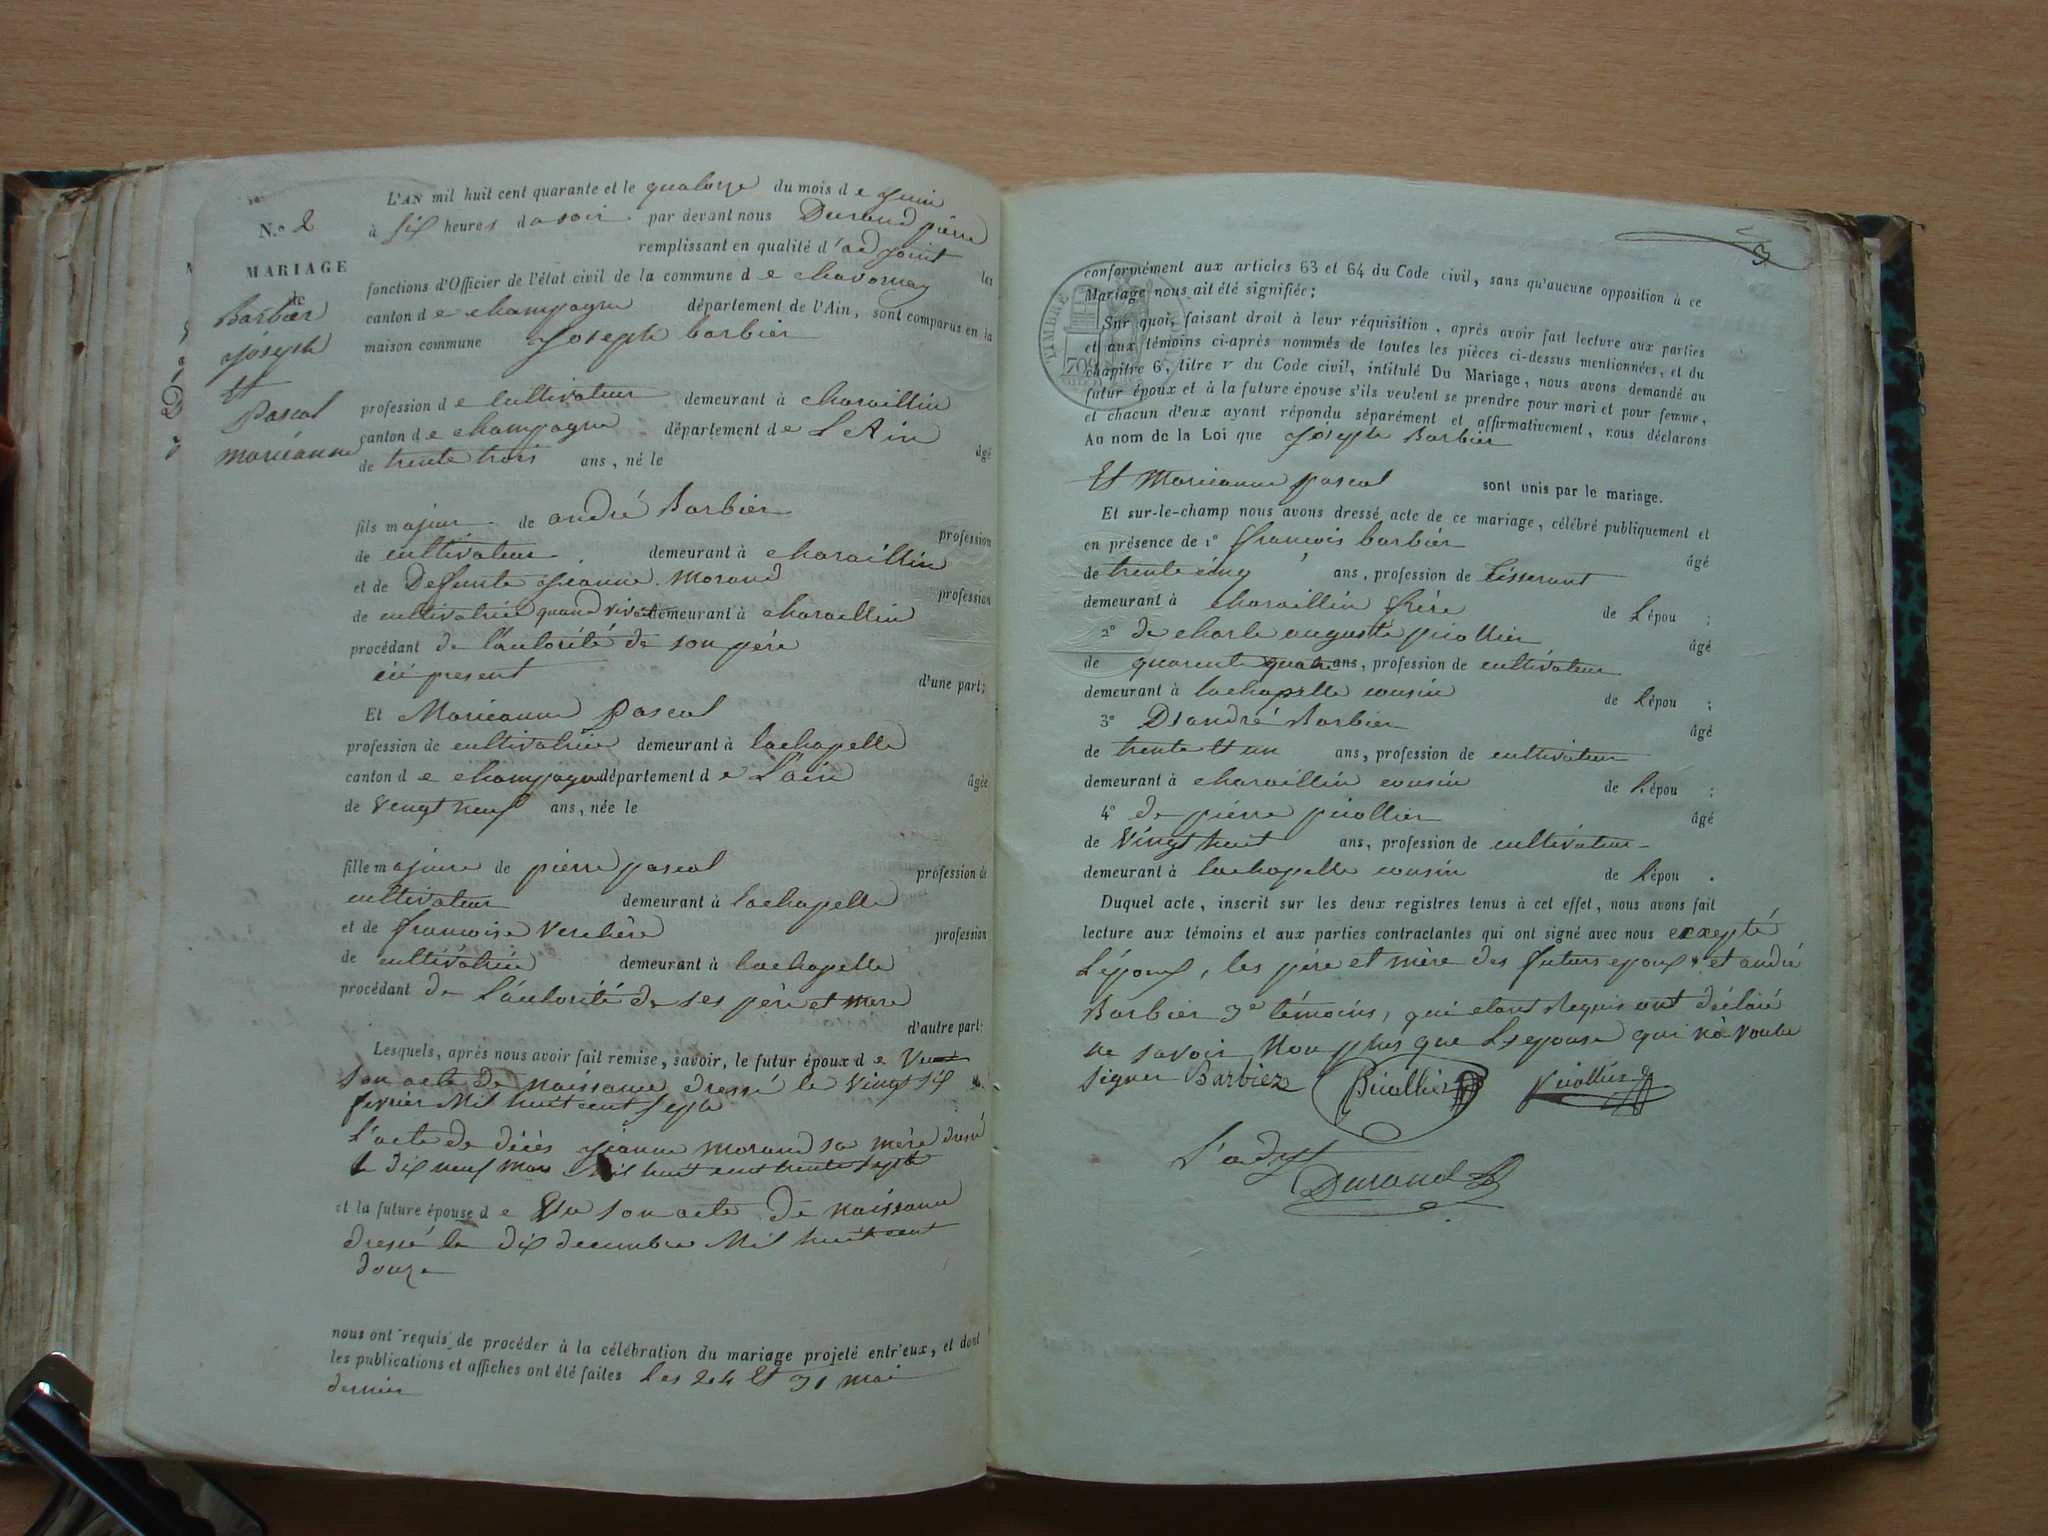 N.° 2
MARIAGE
de
Barbier
joseph
Et
Pascal
marieanne
L'AN mil huit cent quarante et le quatorze du mois d e juin
à six heures du soir par devant nous Durand pierre
remplissant en qualité d'adjoint les
fonctions d'Officier de l'état civil de la commune d e chavornay
canton d e champagne département de l'Ain, sont comparus en la
maison commune joseph barbier
profession d e cultivateur demeurant à charaillin
canton d e champagne département d e L'Ain âgé
de trente trois ans, né le
fils majeur de andré Barbier profession
de cultivateur demeurant à charaillin
et de Defunte jeanne Morand profession
de cultivatrice quand vivait demeurant à charaillin
procédant de l'autorité de son père
ici present d'une part;
Et Marieanne pascal
profession de cultivatrice demeurant à lachapelle
canton d e champagne département d e L'ain âgée
de vingt neuf ans, née le
fille majeure de pierre pascal profession de
cultivateur demeurant à lachapelle
et de francoise Verchère profession
de cultivatrice demeurant à lachapelle
procédant de L'autorité de ses père et mere
d'autre part;
Lesquels, après nous avoir fait remise, savoir, le futur époux d e
son acte de naissance dressé le vingt six
fevrier Mil huit cent sept
L'acte de décès jeanne morand sa mère dressé
le dix neuf mars Mil huit cent trente sept
et la future épouse d e son acte de naissance
dressé le dix decembre Mil huit cent
douze
nous ont requis de procéder à la célébration du mariage projeté entr'eux, et dont
les publications et affiches ont été faites les 24 Et 31 mai
dernier
3
TIMBRE
conformément aux articles 63 et 64 du Code civil, sans qu'aucune opposition à ce
Mariage nous ait été signifiée;
Sur quoi, faisant droit à leur réquisition, après avoir fait lecture aux parties
et aux témoins ci-après nommés de toutes les pièces ci-dessus mentionnées, et du
chapitre 6, titre v du Code civil, intitulé Du Mariage, nous avons demandé au
futur époux et à la future épouse s'ils veulent se prendre pour mari et pour femme,
et chacun d'eux ayant répondu séparément et affirmativement, nous déclarons
Au nom de la Loi que joseph Barbier
Et Marieanne pascal sont unis par le mariage.
Et sur-le-champ nous avons dressé acte de ce mariage, célébré publiquement et
en présence de 1° francois barbier âgé
de trente cinq ans, profession de tisserant
demeurant à charaillin frère de l'épou ;
2° de charle auguste picollier âgé
de quarente quatre ans, profession de cultivateur
demeurant à lachapelle cousin de l'épou ;
3° D'andré Barbier âgé
de trente Et un ans, profession de cultivateur
demeurant à charaillin cousin de l'épou ;
4° de pierre picollier âgé
de Vingt huit ans, profession de cultivateur
demeurant à lachapelle cousin de l'épou .
Duquel acte, inscrit sur les deux registres tenus à cet effet, nous avons fait
lecture aux témoins et aux parties contractantes qui ont signé avec nous excepté
L'époux, les père et mère des futurs epoux et andré
Barbier 3e témoins, qui étant Requis ont déclaré
ne savoir Non plus que L'epouse qui n'à voulu
signer Barbiez Picollier Picollier
L'adjt
Durand